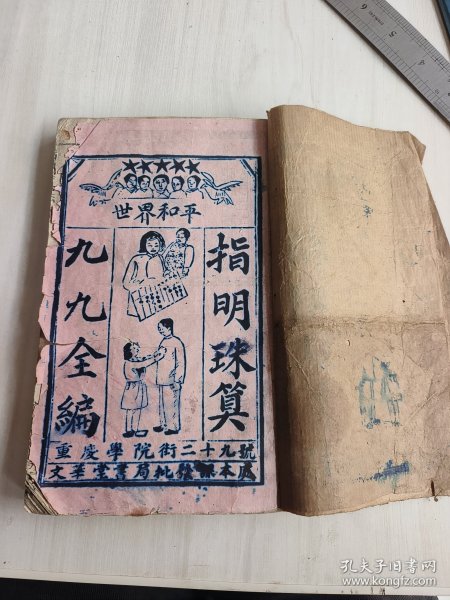 世界和平
指明珠算
九九全編
重慶學院街二十九號
文華堂書局批發課本處
孔夫子旧书网
www.kongfz.com